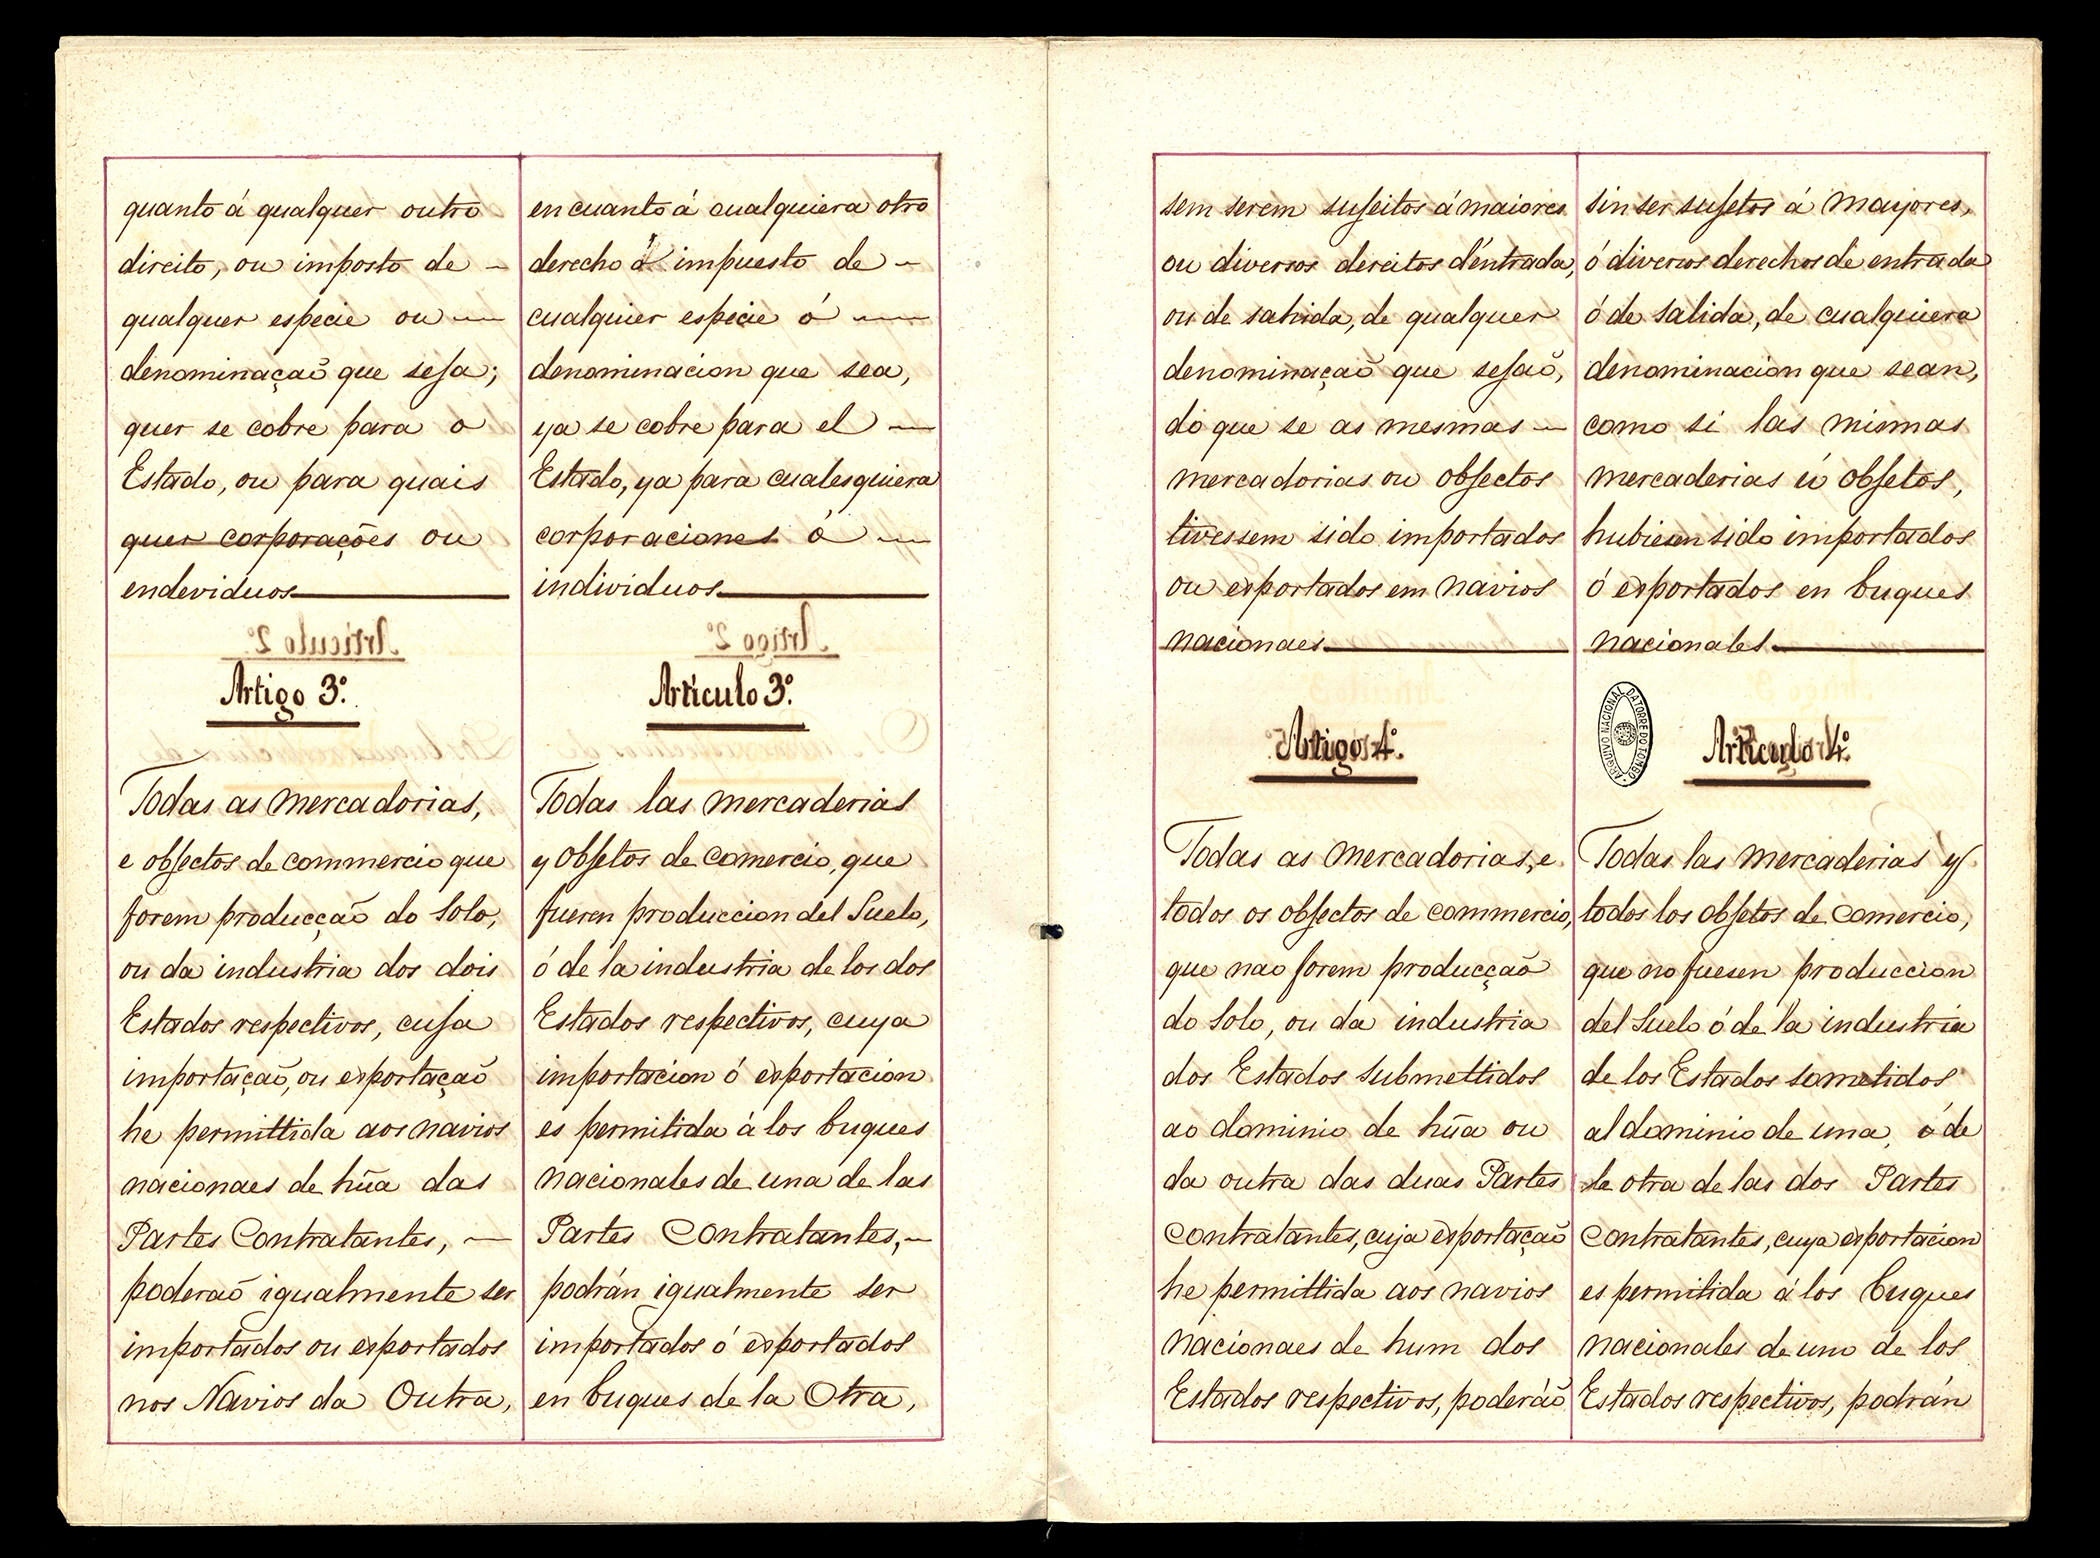 quanto á qualquer outro
direito, ou imposto de
qualquer especie ou
denominaçaõ que seja;
quer se cobre para o
Estado, ou para quais
quer corporações ou
endeviduos
Artigo 3º.
Todas as mercadorias,
e objectos de commercio que
forem producçaõ do solo,
ou da industria dos dois
Estados respectivos, cuja
importaçaõ, ou exportaçaõ
he permittida aos navios
nacionaes de hũa das
Partes Contratantes,
poderaõ igualmente ser
importados ou exportados
nos Navios da Outra,
en cuanto á cualquiera otro
derecho ó impuesto de
cualquier especie ó
denominacion que sea,
ya se cobre para el
Estado, ya para cualesquiera
corporaciones ó
individuos
Articulo 3º.
Todas las mercaderias
y objetos de comercio, que
fueren produccion del Suelo,
ó de la industria de los dos
Estados respectivos, cuya
importacion ó exportacion
es permitida á los buques
nacionales de una de las
Partes Contratantes,
podrán igualmente ser
importados ó exportados
en buques de la Otra,
sem serem sujeitos á maiores
ou diversos dereitos d'entrada,
ou de sahida, de qualquer
denominaçaõ que sejaõ,
do que se as mesmas
mercadorias ou objectos
tivessem sido importados
ou exportados em navios
nacionaes
Artigo 4º.
Todas as mercadorias, e
todos os objectos de commercio,
que nao forem producçaõ
do solo, ou da industria
dos Estados submettidos
ao dominio de hũa ou
da outra das duas Partes
Contratantes, cuja exportaçaõ
he permittida aos navios
nacionaes de hum dos
Estados respectivos, poderáõ
sin ser sujetos á mayores,
ó diversos derechos de entrada
ó de salida, de cualquiera
denominacion que sean,
como si las mismas
mercaderias ú objetos,
hubiesen sido importados
ó exportados en buques
nacionales
ARQUIVO NACIONAL DA TORRE DO TOMBO
Articulo 4º.
Todas las mercaderias y
todos los objetos de comercio,
que no fuesen produccion
del Suelo ó de la industria
de los Estados sometidos
al dominio de una, ó de
la otra de las dos Partes
Contratantes, cuya exportacion
es permitida á los buques
nacionales de uno de los
Estados respectivos, podrán